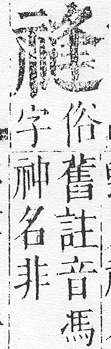 俗字
舊註音馮
神名非